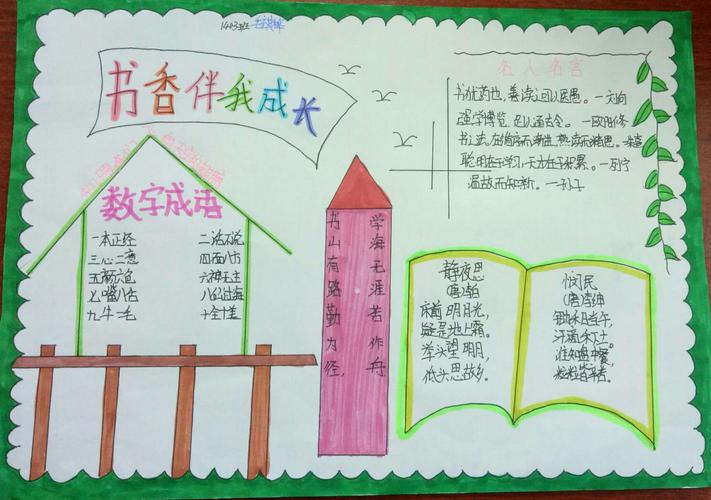 1403班
书香伴我成长
名人名言
书犹药也,善读可以医愚。一刘向
强学博览,足以通古今。一欧阳修
书之法,在循序而渐进,熟读而精思。一朱熹
聪明在于学习,天才在于积累。一列宁
温故而知新。一孔子
数字成语
一本正经 二话不说
三心二意 四面八方
五颜六色 六神无主
七嘴八舌 八仙过海
九牛一毛 十全十美
书山有路勤为径,
学海无涯苦作舟
静夜思
(唐)李白
床前明月光,
疑是地上霜。
举头望明月,
低头思故乡。
悯民
(唐)李绅
锄禾日当午,
汗滴禾下土。
谁知盘中餐,
粒粒皆辛苦。